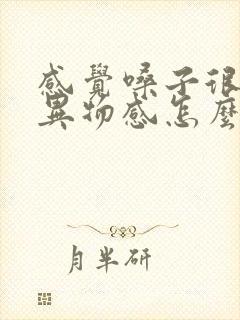 感覺嗓子很
異物感怎麼
月半研